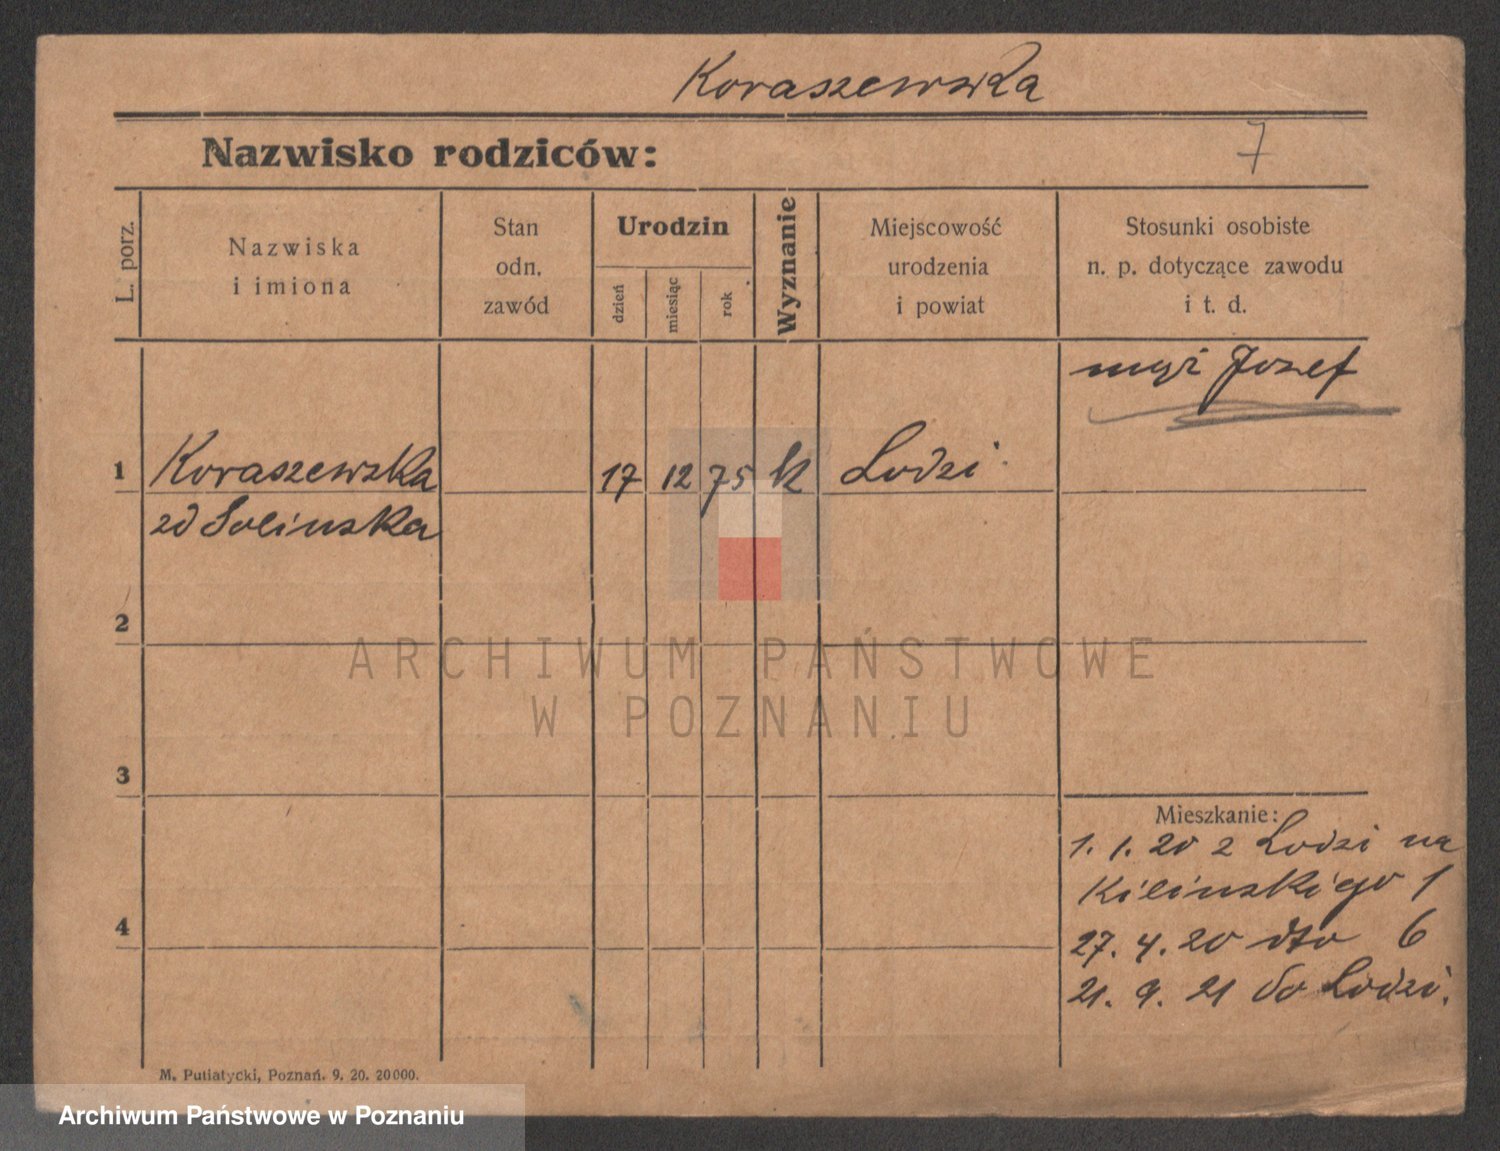 Koraszewska
7
Nazwisko rodziców:
L. porz.
Nazwiska
i imiona
Stan
odn.
zawód
Urodzin
dzień
miesiąc
rok
Wyznanie
Miejscowość
urodzenia
i powiat
Stosunki osobiste
n. p. dotyczące zawodu
i t. d.
mąż Jozef
1 Koraszewska 17 12 75 k Lodzi
zd Solinska
2
ARCHIWUM PAŃSTWOWE
W POZNANIU
3
Mieszkanie:
1. 1. 20 z Lodzi na
Kilinskiego 1
4
27. 4. 20 dto 6
21. 9. 21 do Lodzi.
M. Putiatycki, Poznań. 9. 20. 20000.
Archiwum Państwowe w Poznaniu